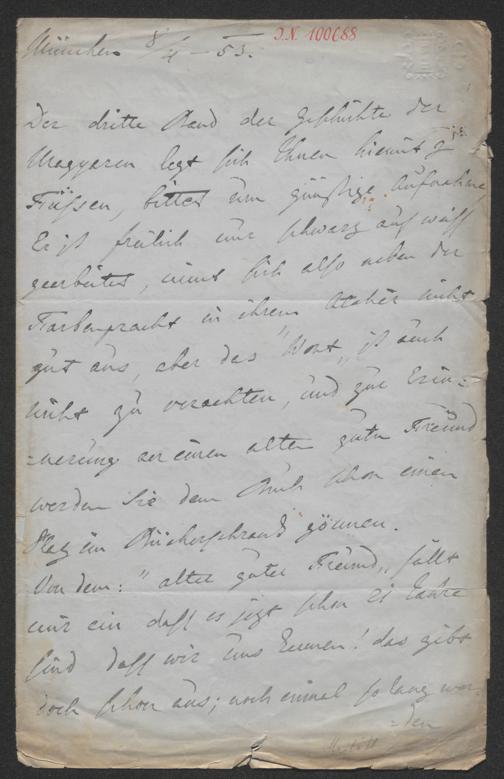 München 8/4 – 53.
J.N. 100688
Der dritte Band der Geschichte der
Magyaren legt sich Ihnen hiemit z
Füssen, bittet um günstige Aufnahme
Er ist freilich nur schwarz auf weiß
gearbeitet, nimt sich also neben der
Farbenpracht in ihrem Atelier nicht
gut aus, aber das "Wort" ist auch
nicht zu verachten, und zur Erin=
=nerung an einen alten guten Freund
werden Sie dem Buch schon einen
Platz im Bücherschrank gönnen.
Von dem: "alter guter Freund" fällt
mir ein daß es jezt schon 21 Jahre
sind daß wir uns kennen! das gibt
doch schon aus; noch einmal so lang wer
=den